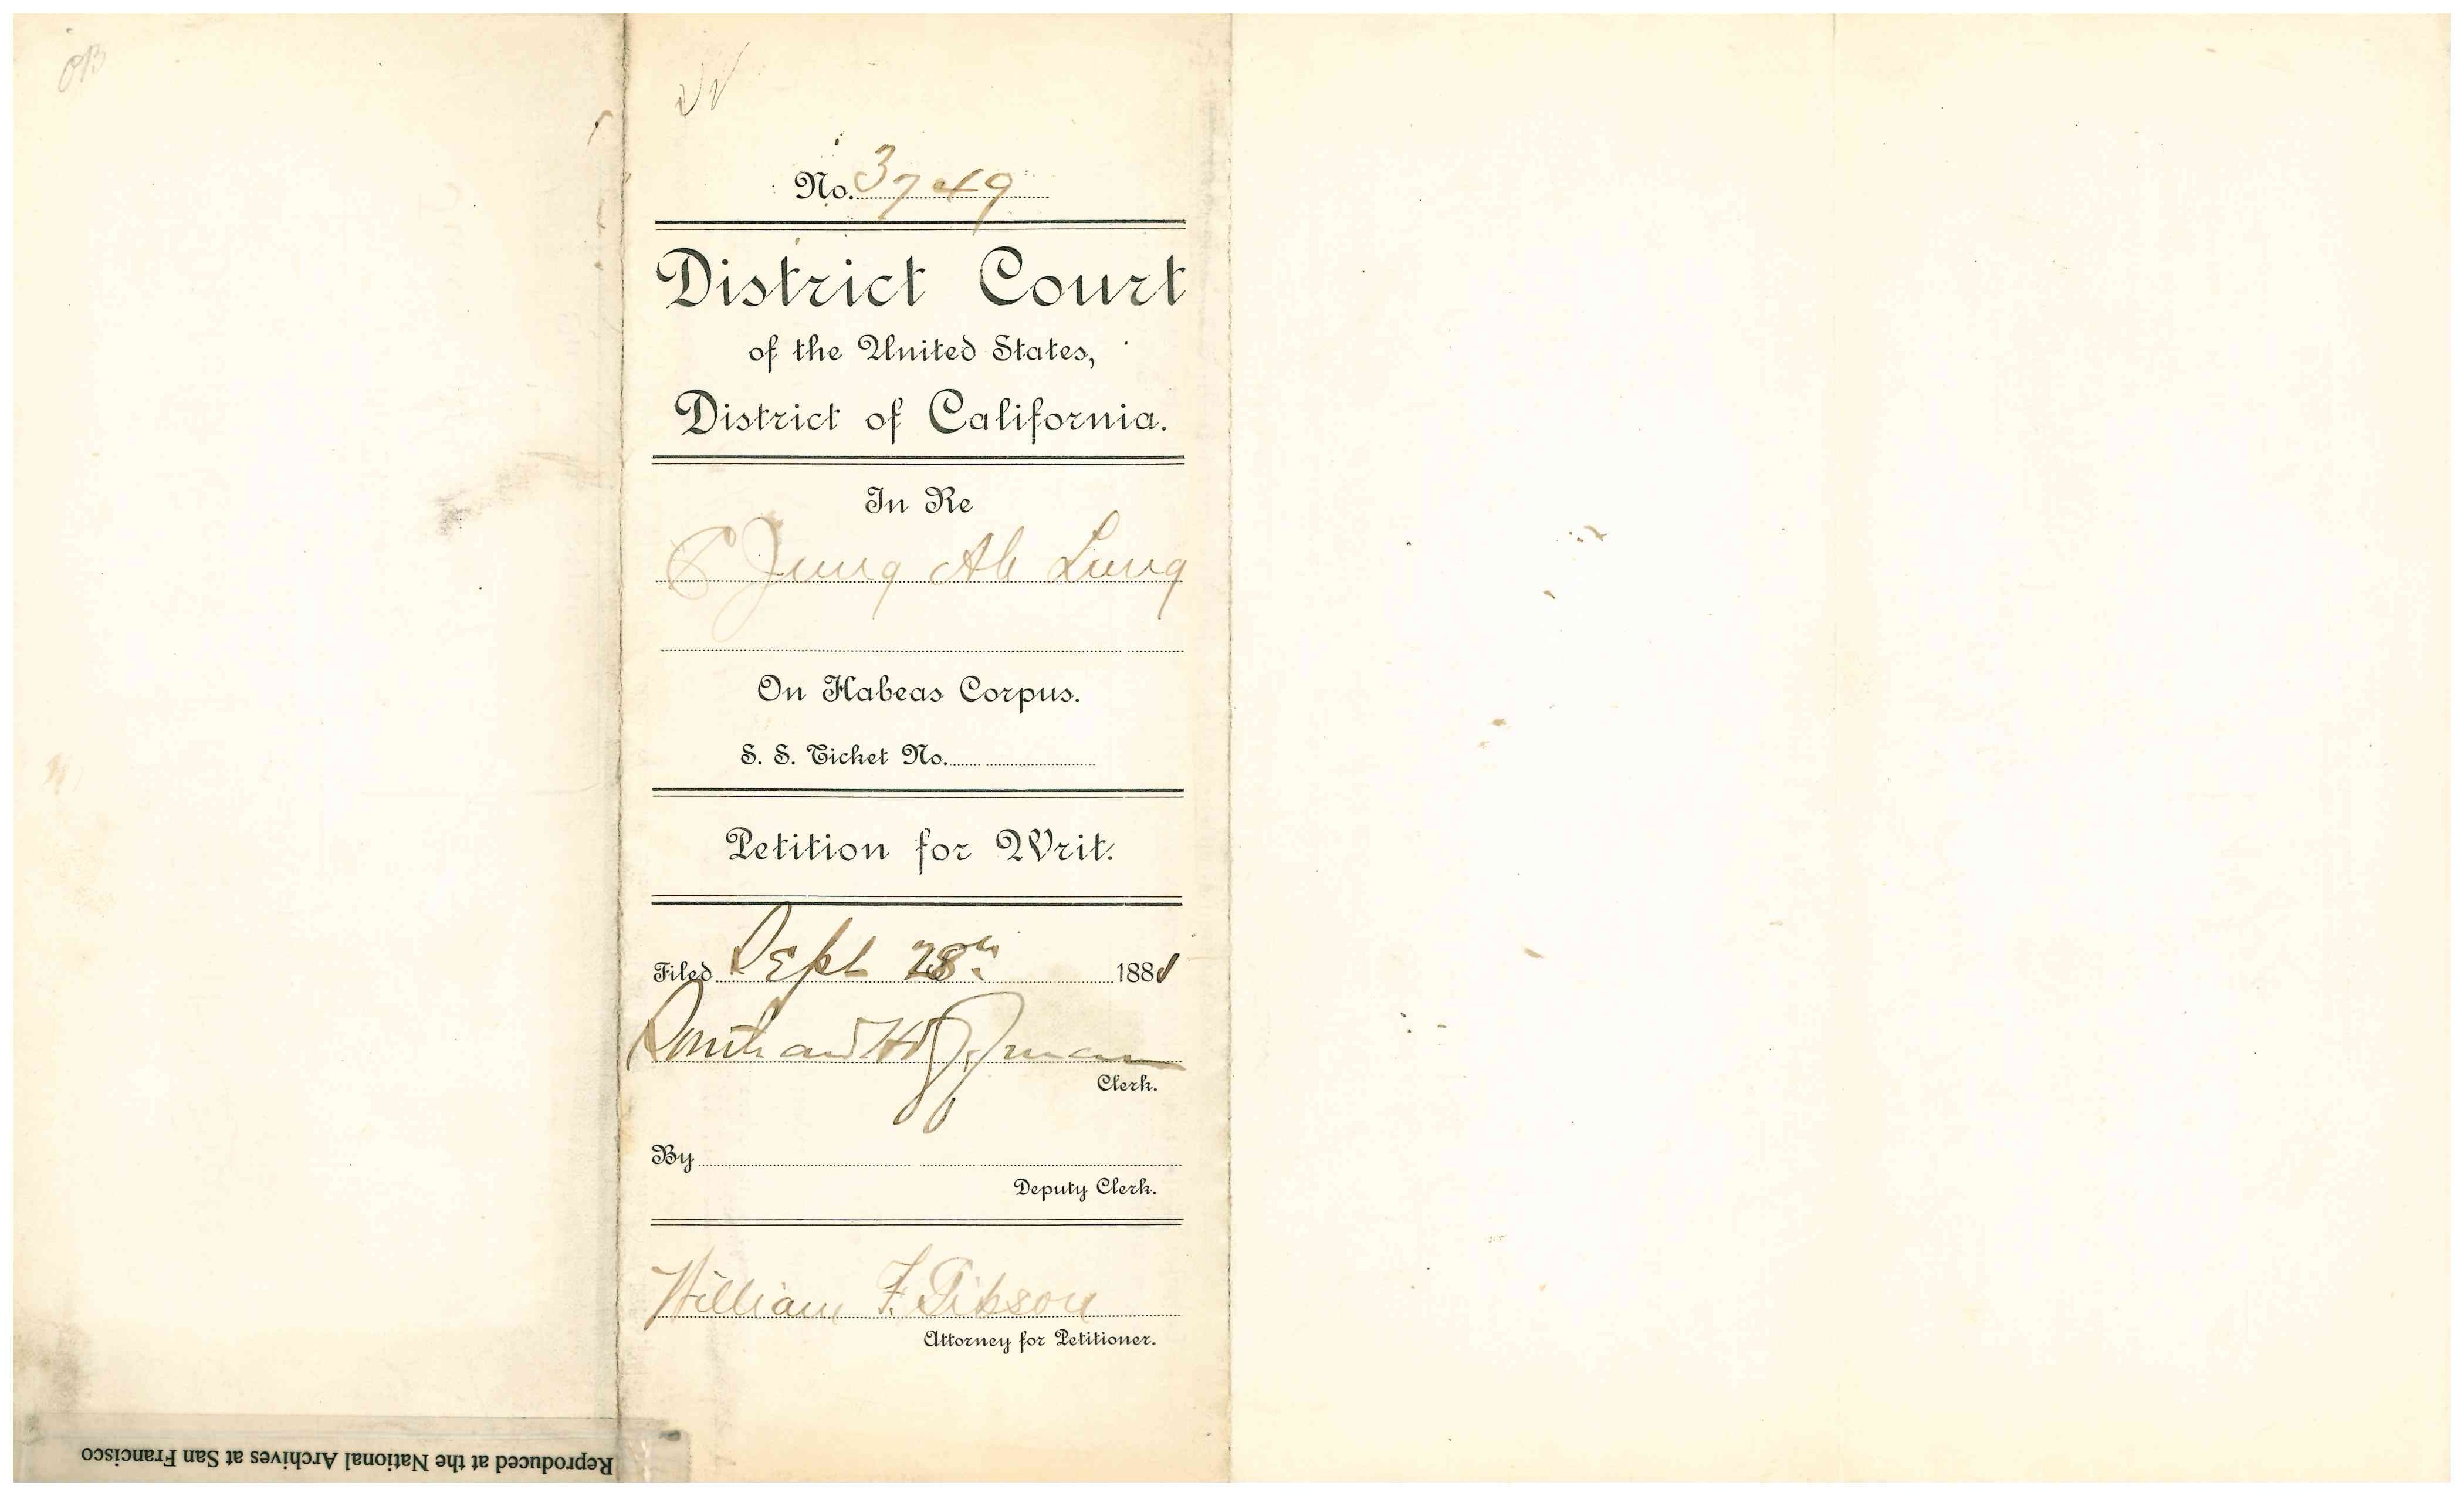 No. 3749
District Court
of the United States,
District of California.
In Re
Jung Ah Lung
On Habeas Corpus.
S. S. Ticket No.
Petition for Writ.
Filed Sept 28th 188
Southard Hoffman
Clerk.
By
Deputy Clerk.
William F. Gibson
Attorney for Petitioner.
Reproduced at the National Archives at San Francisco